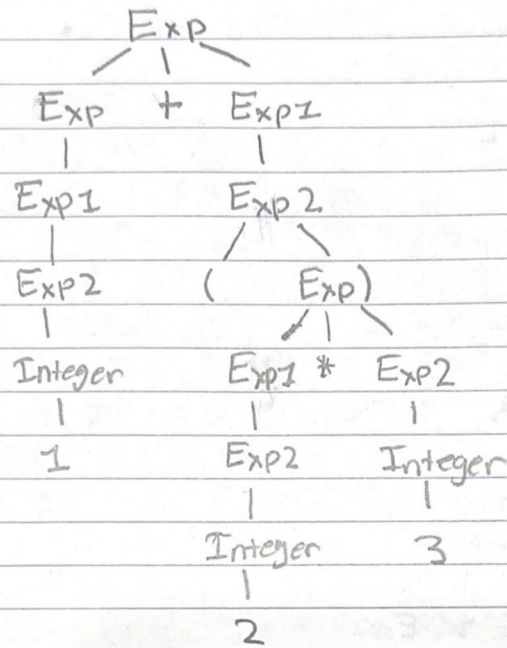 Exp
Exp + Exp1
Exp1 Exp2
Exp2 ( Exp)
Integer Exp1 * Exp2
1 Exp2 Integer
Integer 3
2